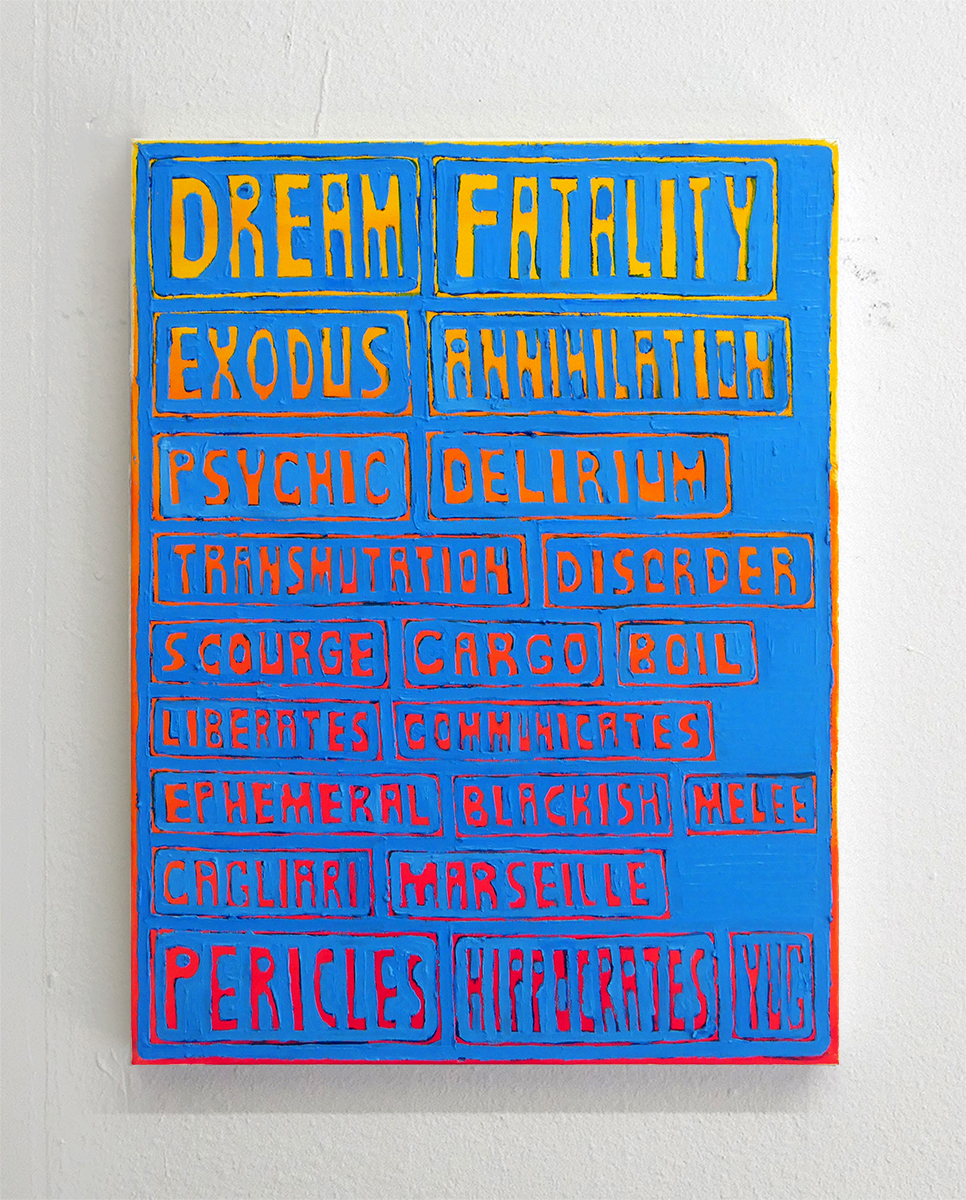 DREAM FATALITY
EXODUS ANNIHILATION
PSYCHIC DELIRIUM
TRANSMUTATION DISORDER
SCOURGE CARGO BOIL
LIBERATES COMMUNICATES
EPHEMERAL BLACKISH MELEE
CAGLIARI MARSEILLE
PERICLES HIPPOCRATES YUG